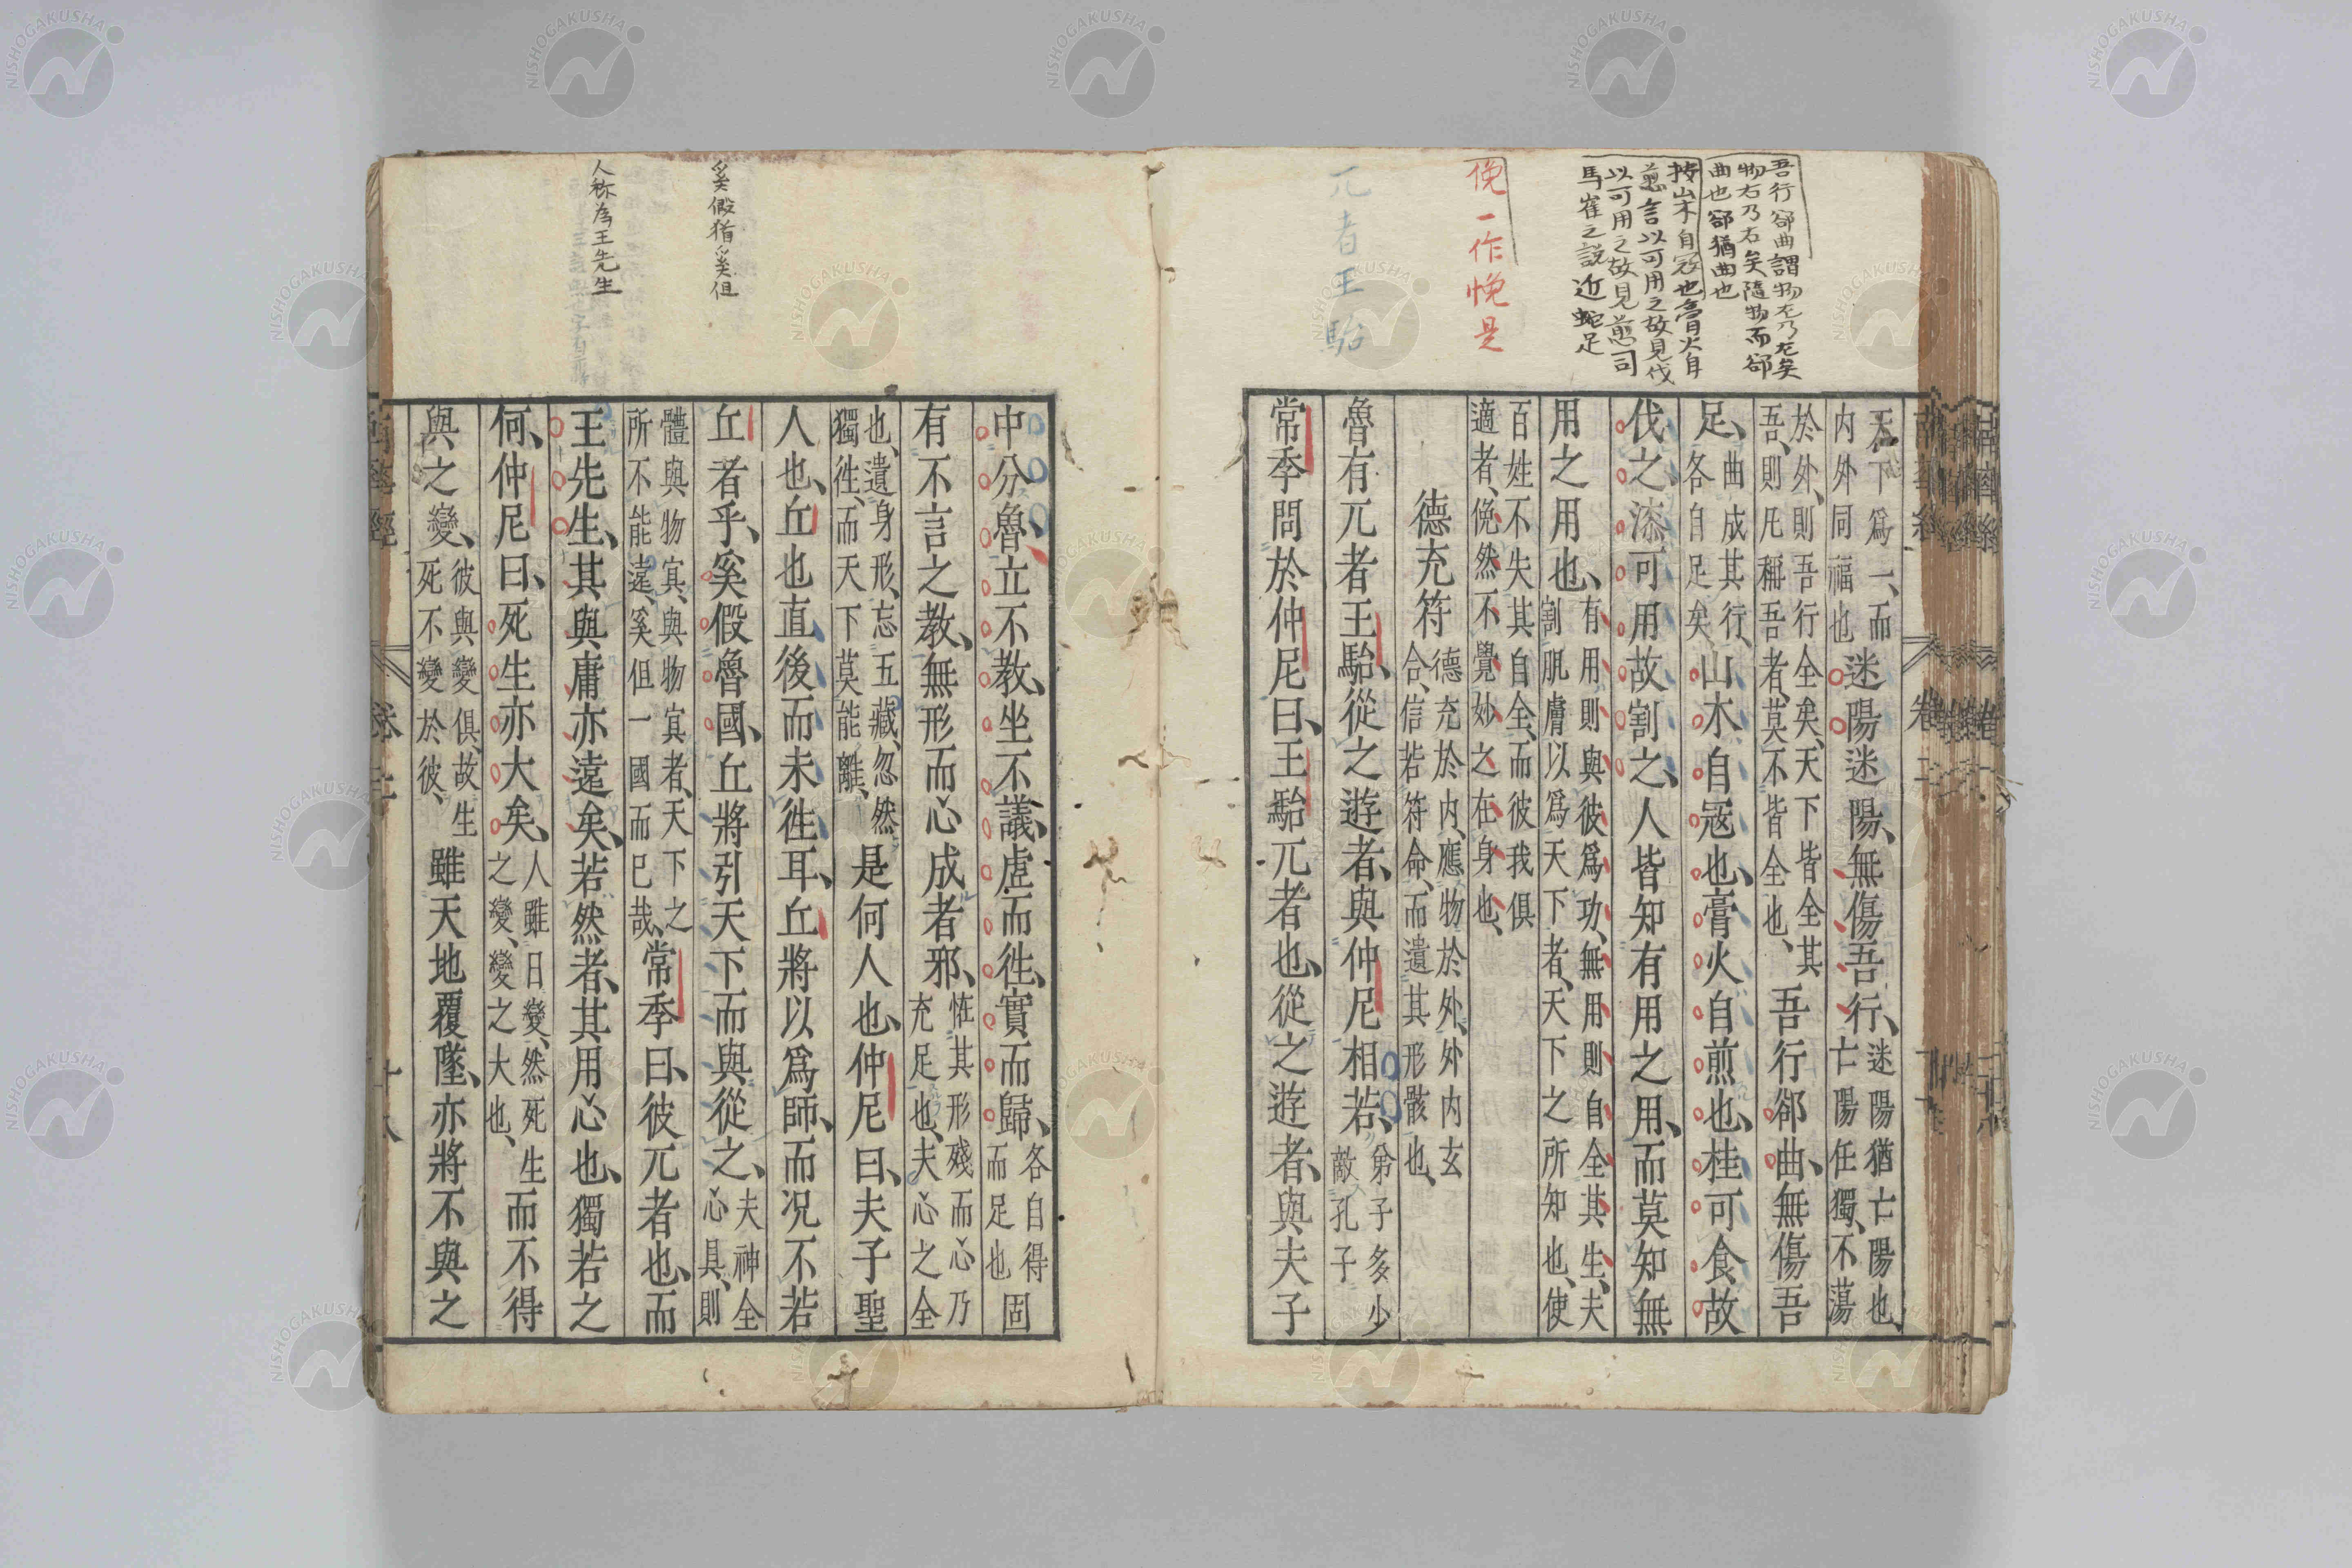 吾行郤曲謂物左乃左矣
物右乃右矣隨物而郤
曲也郤猶曲也
按山木自冦也膏火自
煎言以可用之故見伐
以可用之故見煎司
馬崔之説近蛇足
俛一作悗是
兀者王駘
天下爲一、而
内外同福也
迷陽迷陽、無傷吾行、
迷陽猶亡陽也、
亡陽任獨、不蕩
於外、則吾行全矣、天下皆全其
吾、則凡稱吾者、莫不皆全也、
吾行郤曲、無傷吾
足、
曲成其行、
各自足矣
山木自冦也、膏火自煎也、桂可食、故
伐之、漆可用、故割之、人皆知有用之用、而莫知無
用之用也、
有用則與彼爲功、無用則自全其生、夫
割肌膚以爲天下者、天下之所知也、使
百姓不失其自全、而彼我俱
適者、俛然不覺妙之在身也、
德充符
德充於内、應物於外、外内玄
合、信若符命、而遺其形骸也、
魯有兀者王駘、從之遊者、與仲尼相若、
弟子多少
敵孔子
常季問於仲尼曰、王駘兀者也、從之遊者、與夫子
中分魯、立不教、坐不議、虚而徃、實而歸、
各自得
而足也
固
有不言之教、無形而心成者邪、
恠其形殘而心乃
充足也、夫心之全
也、遺身形、忘五藏、忽然
獨徃、而天下莫能離、
是何人也、仲尼曰、夫子聖
人也、丘也直後而未徃耳、丘將以爲師、而况不若
丘者乎、奚假魯國、丘將引天下而與從之、
夫神全
心具、則
體與物㝠、與物㝠者、天下之
所不能違、奚但一國而已哉、
常季曰、彼兀者也、而
王先生、其與庸亦遠矣、若然者、其用心也、獨若之
何、仲尼曰、死生亦大矣、
人雖日變、然死生
之變、變之大也、
而不得
與之變、
彼與變俱、故生
死不變於彼、
雖天地覆墜、亦將不與之
奚假猶奚但
人称為王先生